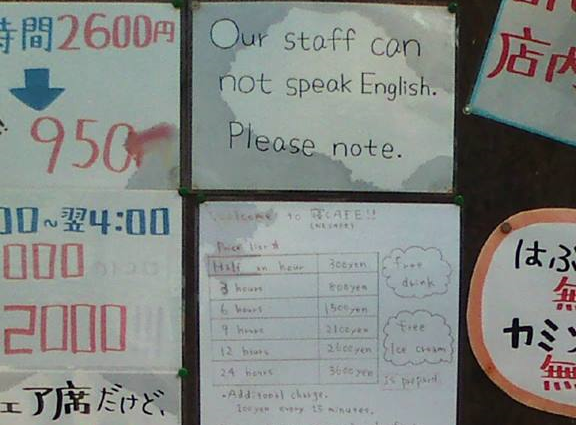 時間2600円
950
Our staff can
not speak English.
Please note.
店内
00~翌4:00
000
2000
ェア席だけど、
Welcome to CAFE!!
Price list
Half an hour 300yen
3 hours 800yen
6 hours 1500yen
9 hours 2100yen
12 hours 2600yen
24 hours 3600yen
free
drink
free
Ice cream
is prepared.
・Additional charge.
100yen every 15 minutes.
はぶ
無
カミソ
無